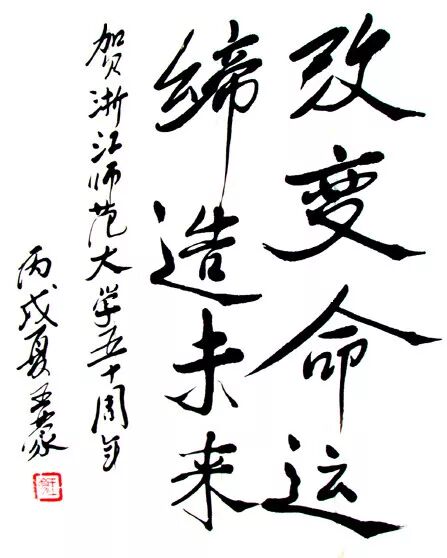 改变命运
缔造未来
贺浙江师范大学五十周年
丙戌夏王蒙